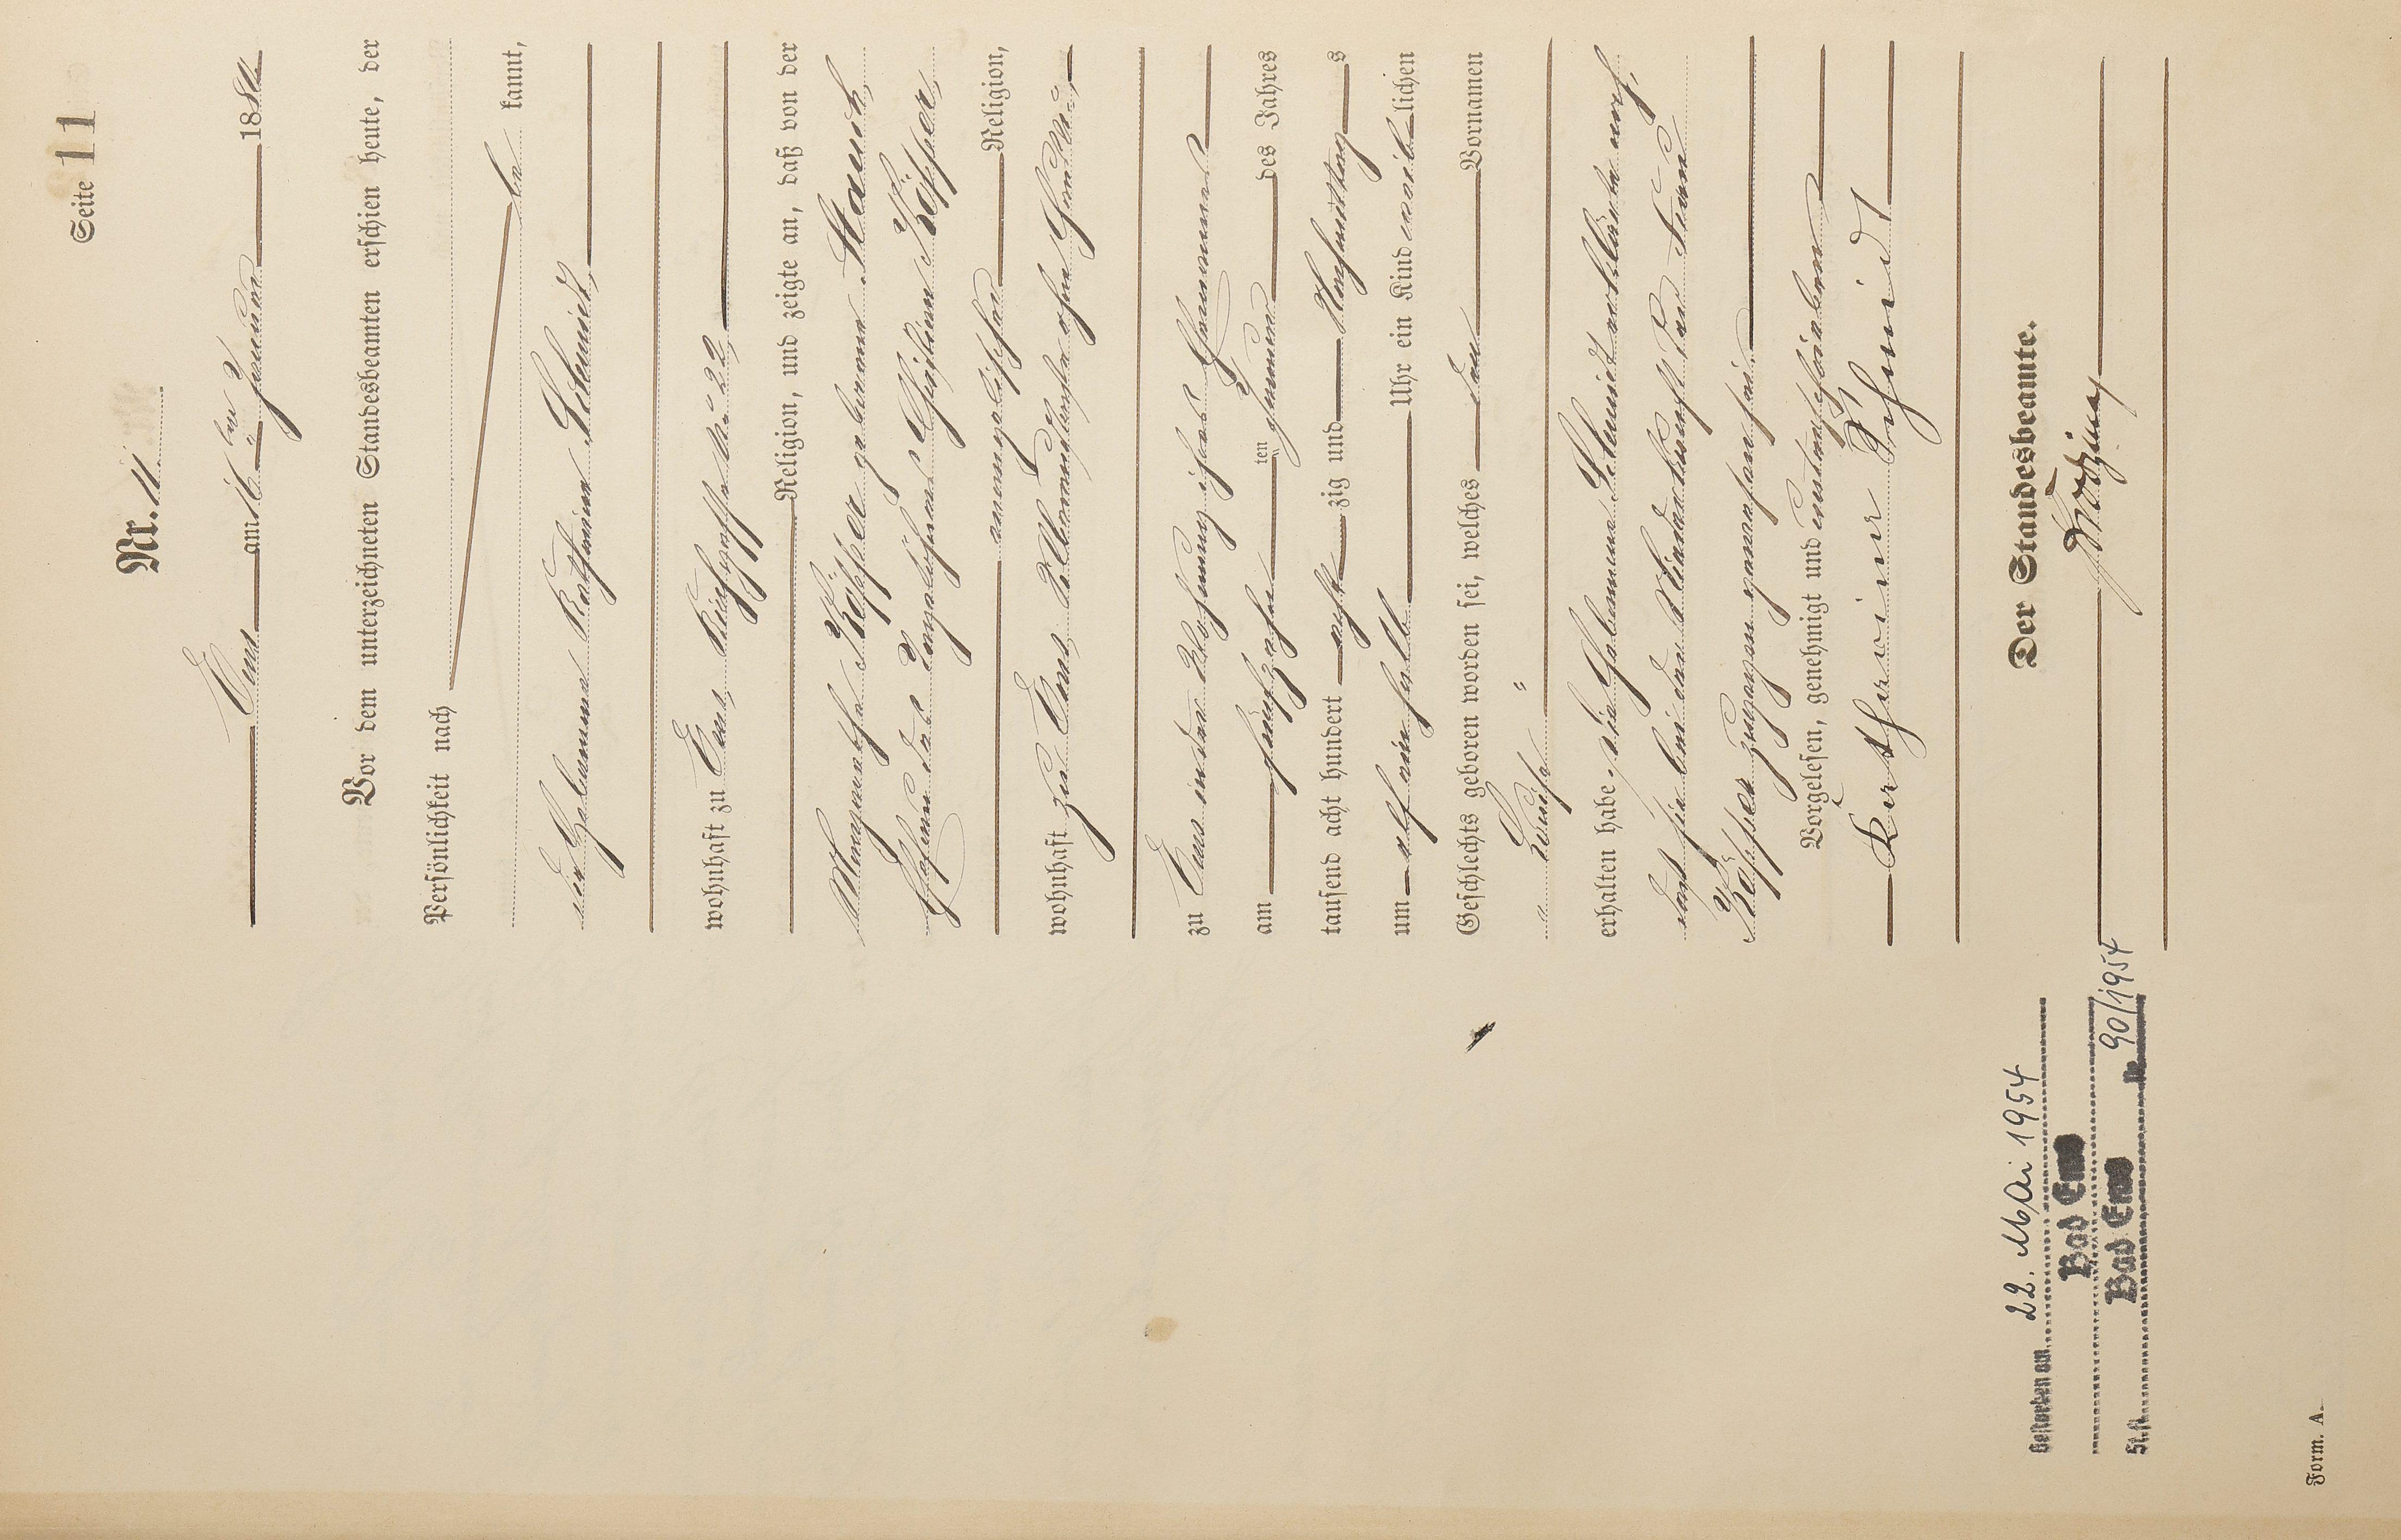 Seite 11
Nr. 11.
Ems am 16ten Januar 188
Vor dem unterzeichneten Standesbeamten erschien heute, der
Persönlichkeit nach
be kannt,
die Hebamme Katharina Schmidt,
wohnhaft zu Ems,
Religion, und zeigte an, daß von der
Küpper geborene Stauch,
Ehefrau des Christian Küpper,
evangelischer Religion,
wohnhaft zu Ems,
zu Ems in der Wohnung ihres Ehemannes
am fünfzehnten Januar des Jahres
tausend acht hundert acht zig und Nachmittags
um elf ein halb Uhr ein Kind weiblichen
Geschlechts geboren worden sei, welches den Vornamen
Luise
erhalten habe. Die Hebamme Schmidt erklärte noch,
daß sie bei der Niederkunft der Frau
Küpper zugegen gewesen sei.
Vorgelesen, genehmigt und unterschrieben
Katharine Schmidt
Der Standesbeamte.
Gestorben am 22. Mai 1954
Bad Ems
St.A. Bad Ems Nr. 90/1954
Form. A.